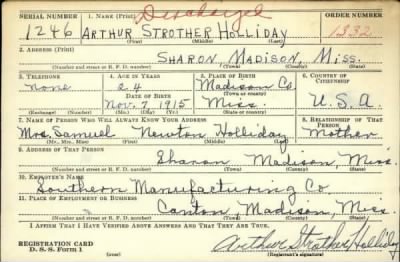 SERIAL NUMBER 1. NAME (Print) Discharged ORDER NUMBER
1246 ARTHUR STROTHER HOLLIDAY 1332
(First) (Middle) (Last)
2. ADDRESS (Print)
SHARON, MADISON, MISS.
(Number and street or R. F. D. number) (Town) (County) (State)
3. TELEPHONE 4. AGE IN YEARS 5. PLACE OF BIRTH 6. COUNTRY OF CITIZENSHIP
none 24 Madison Co. U.S.A.
DATE OF BIRTH (Town or county)
Nov. 7, 1915 Miss.
(Exchange) (Number) (Mo.) (Day) (Yr.) (State or country)
7. NAME OF PERSON WHO WILL ALWAYS KNOW YOUR ADDRESS 8. RELATIONSHIP OF THAT PERSON
Mrs. Samuel Newton Holliday Mother
(Mr., Mrs., Miss) (First) (Middle) (Last)
9. ADDRESS OF THAT PERSON
Sharon Madison, Miss.
(Number and street or R. F. D. number) (Town) (County) (State)
10. EMPLOYER'S NAME
Southern Manufacturing Co
11. PLACE OF EMPLOYMENT OR BUSINESS
Canton, Madison, Miss.
(Number and street or R. F. D. number) (Town) (County) (State)
I AFFIRM THAT I HAVE VERIFIED ABOVE ANSWERS AND THAT THEY ARE TRUE.
REGISTRATION CARD
D. S. S. Form 1 Arthur Strother Holliday
(Registrant's signature)